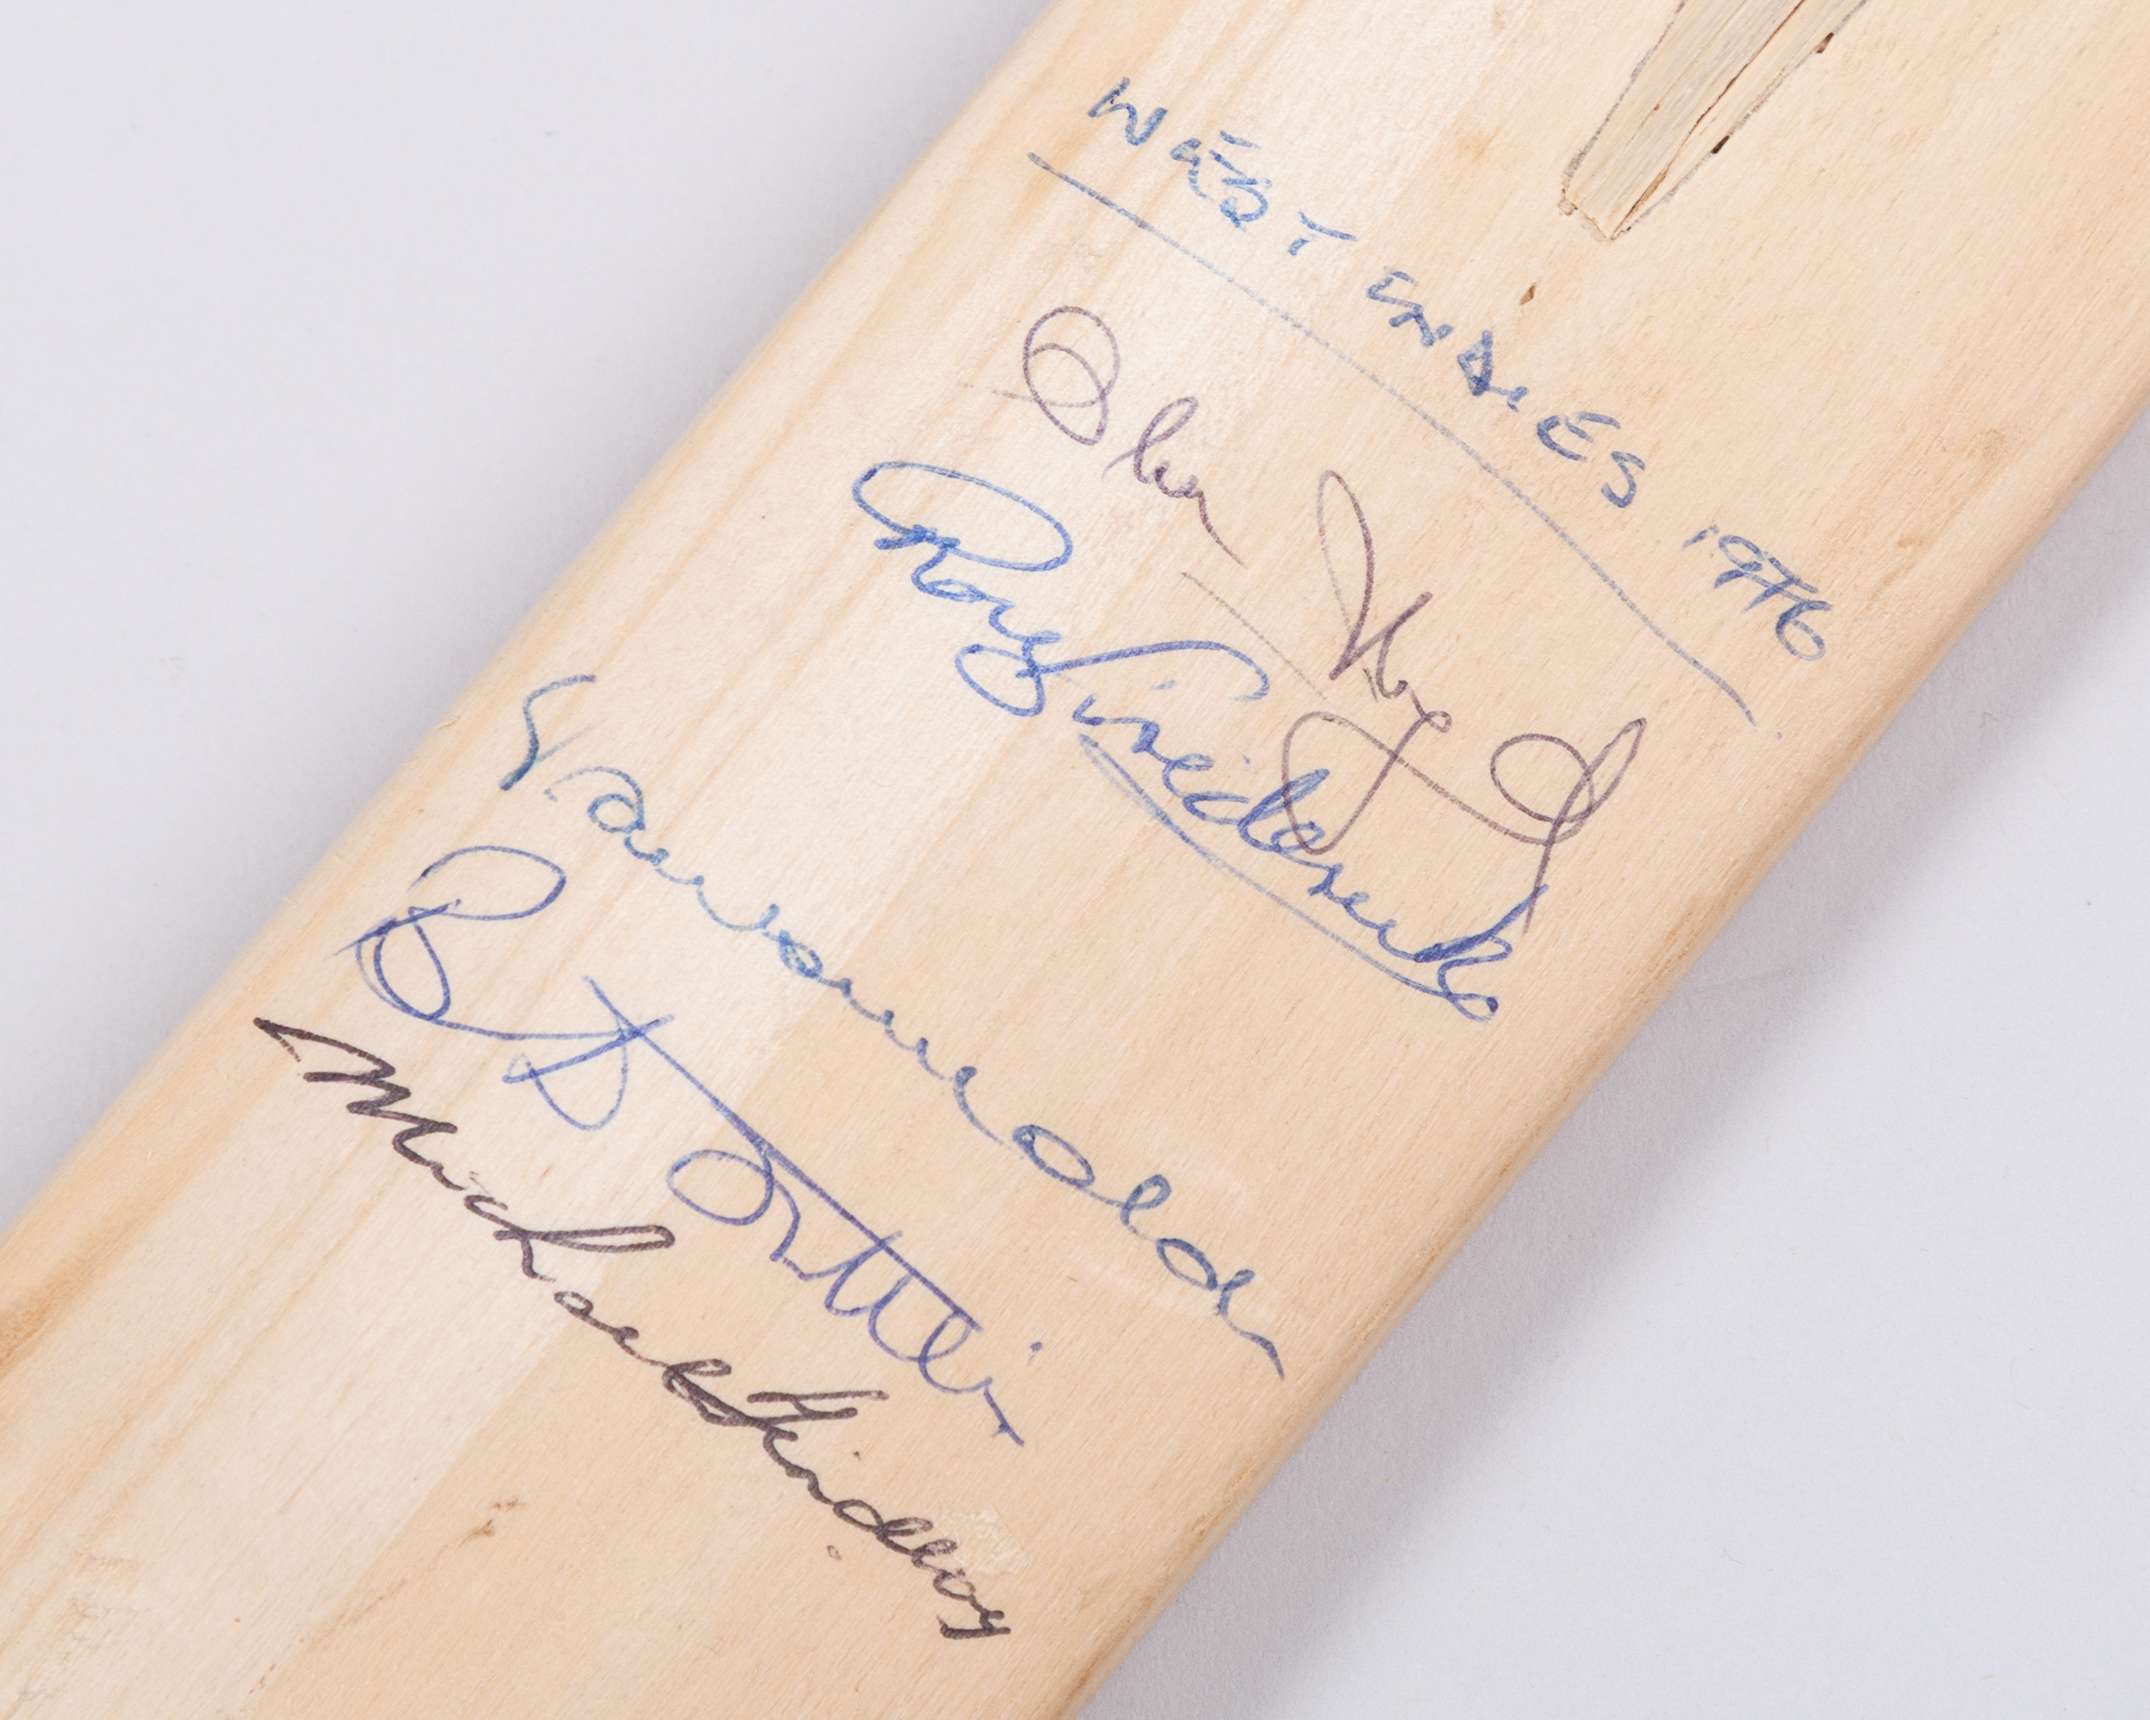 WEST INDIES 1976
Clive Lloyd
Roy Fredericks
B D Julien
Michael Findlay